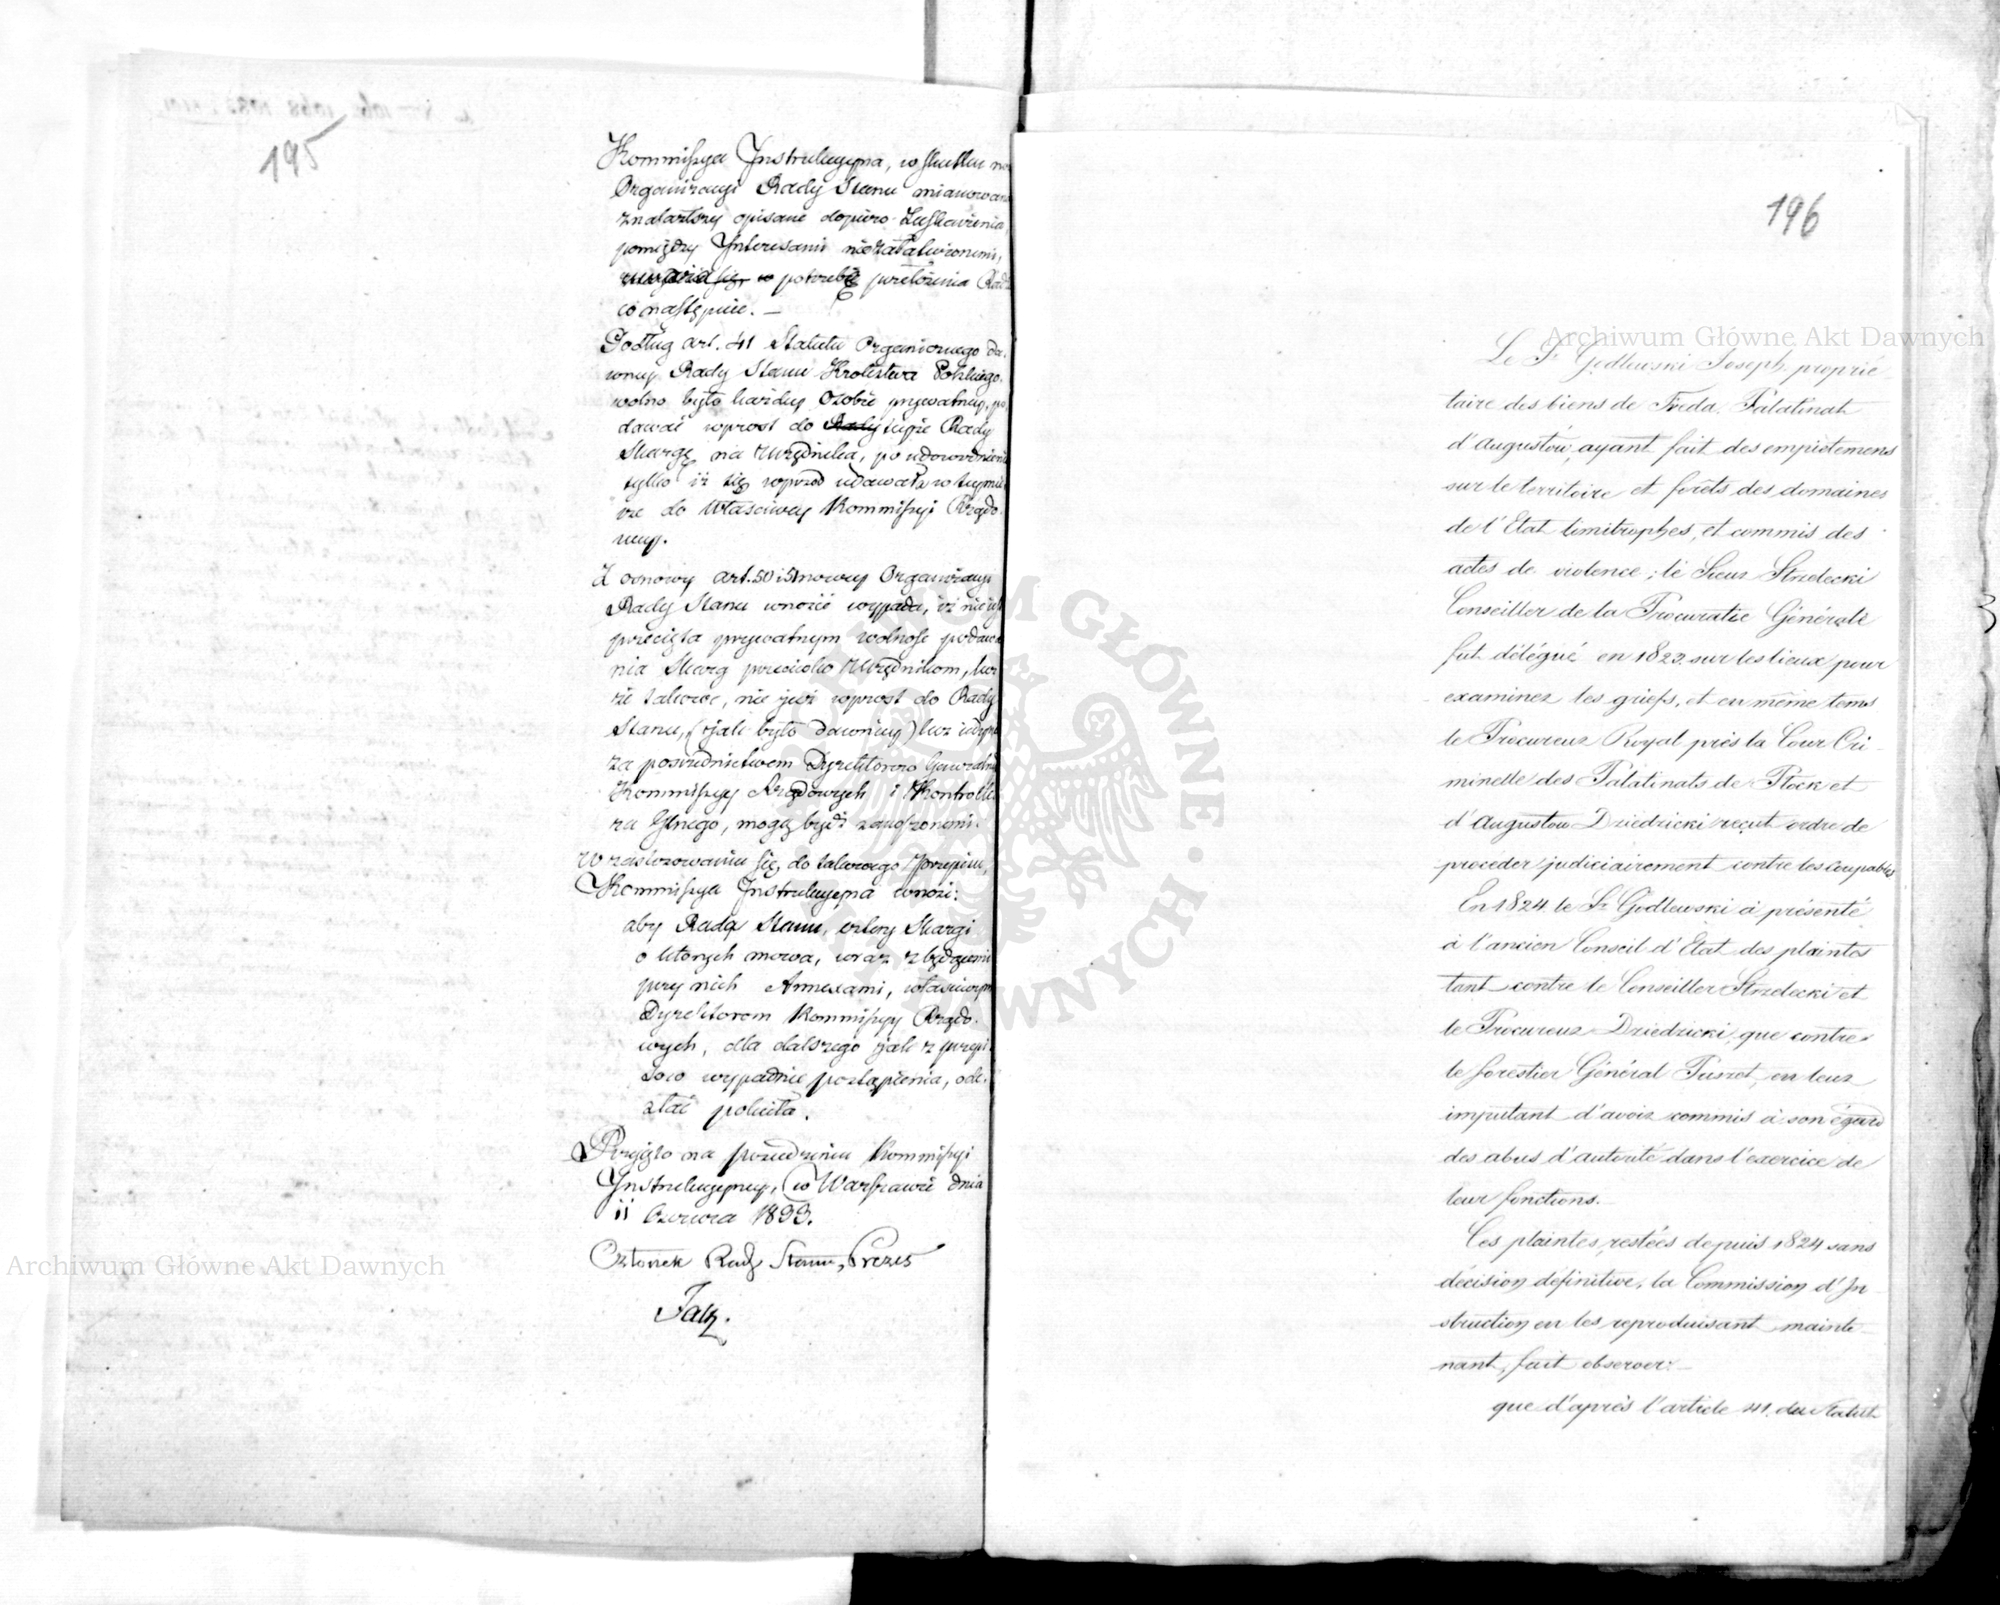 195
Kommissya Instrukcyyna, w skutku no
Organizacyi Rady Stanu mianowana
znalazłszy opisane dopiero Zaskarżenia,
pomiędzy Interesami niezałatwionemi,
potrzebę przełożenia Radz
co następuie. —
Podług art. 41 Statutu Organicznego da-
wney Rady Stanu Królestwa Polskiego
wolno było każdey Osobie prywatney, po
dawać wprost do Rady teyże Rady
Skargę na Urzędnika, po udowodnieniu
tylko iż się wprzód udawała w teymie
rze do Właściwey Kommissyi Rządo-
wey.
Z osnowy art. 50 i 51 nowey Organizacyi
Rady Stanu wnosić wypada, iż nie jest
przecięta prywatnym wolność podawa
nia Skarg przeciwko Urzędnikom, lecz
że takowe, nie już wprost do Rady
Stanu, (jak było dawniey) lecz iedynie
za pośrednictwem Dyrektorów Generalnych
Kommissyy Rządowych i Kontrolle
ra Glnego, mogą bydź zanoszonemi.
W zastosowaniu się do takowego przepisu,
Kommissya Instrukcyyna wnosi:
aby Rada Stanu, cztery Skargi
o których mowa, wraz z będącemi
przy nich Annexami, właściwym
Dyrektorom Kommissyy Rządo-
wych, dla dalszego jak z przepi-
sów wypadnie postąpienia, ode-
słać poleciła.
Przyięto na posiedzeniu Kommissyi
Instrukcyyney, w Warszawie dnia
11 Czerwca 1833.
Członek Rady Stanu, Prezes
196
Le Sr Godlewski Joseph proprié-
taire des biens de Freda Palatinat
d'Augustów, ayant fait des empietemens
sur le territoire et forêts des domaines
de l'Etat limitrophes, et commis des
actes de violence; le Sieur Strzelecki
Conseiller de la Procuratie Générale
fut délégué en 1823 sur les lieux pour
examiner les griefs, et en même tems
le Procureur Royal près la Cour Cri-
minelle des Palatinats de Płock et
d'Augustów Dziedzicki reçut ordre de
proceder judiciairement contre les coupables
En 1824 le Sr Godlewski a présenté
à l'ancien Conseil d'Etat des plaintes
tant contre le Conseiller Strzelecki et
le Procureur Dziedzicki, que contre
le forestier Général Puszet, en leur
imputant d'avoir commis à son égard
des abus d'autorité dans l'exercice de
leur fonctions.
Ces plaintes, restées depuis 1824 sans
décision définitive, la Commission d'In-
struction en les reproduisant mainte-
nant, fait observer: —
que d'après l'article 41. du Statut
Archiwum Główne Akt Dawnych
Archiwum Główne Akt Dawnych